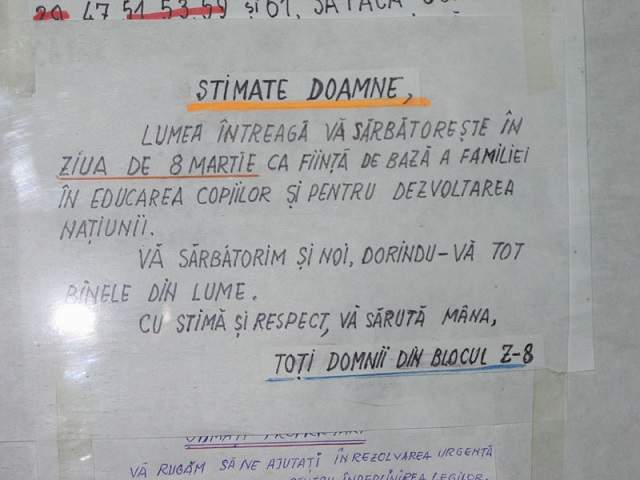 29 47 51 53 59 și 61,
ȘTIMATE DOAMNE,
LUMEA ÎNTREAGĂ VĂ SĂRBĂTOREȘTE ÎN
ZIUA DE 8 MARTIE CA FIINȚĂ DE BAZĂ A FAMILIEI
ÎN EDUCAREA COPIILOR ȘI PENTRU DEZVOLTAREA
NAȚIUNII.
VĂ SĂRBĂTORIM ȘI NOI, DORINDU-VĂ TOT
BINELE DIN LUME.
CU STIMĂ ȘI RESPECT, VĂ SĂRUTĂ MÂNA,
TOȚI DOMNII DIN BLOCUL Z-8
VĂ RUGĂM SĂ NE AJUTAȚI ÎN REZOLVAREA URGENTĂ
PENTRU ÎNDEPLINIREA LEGILOR.